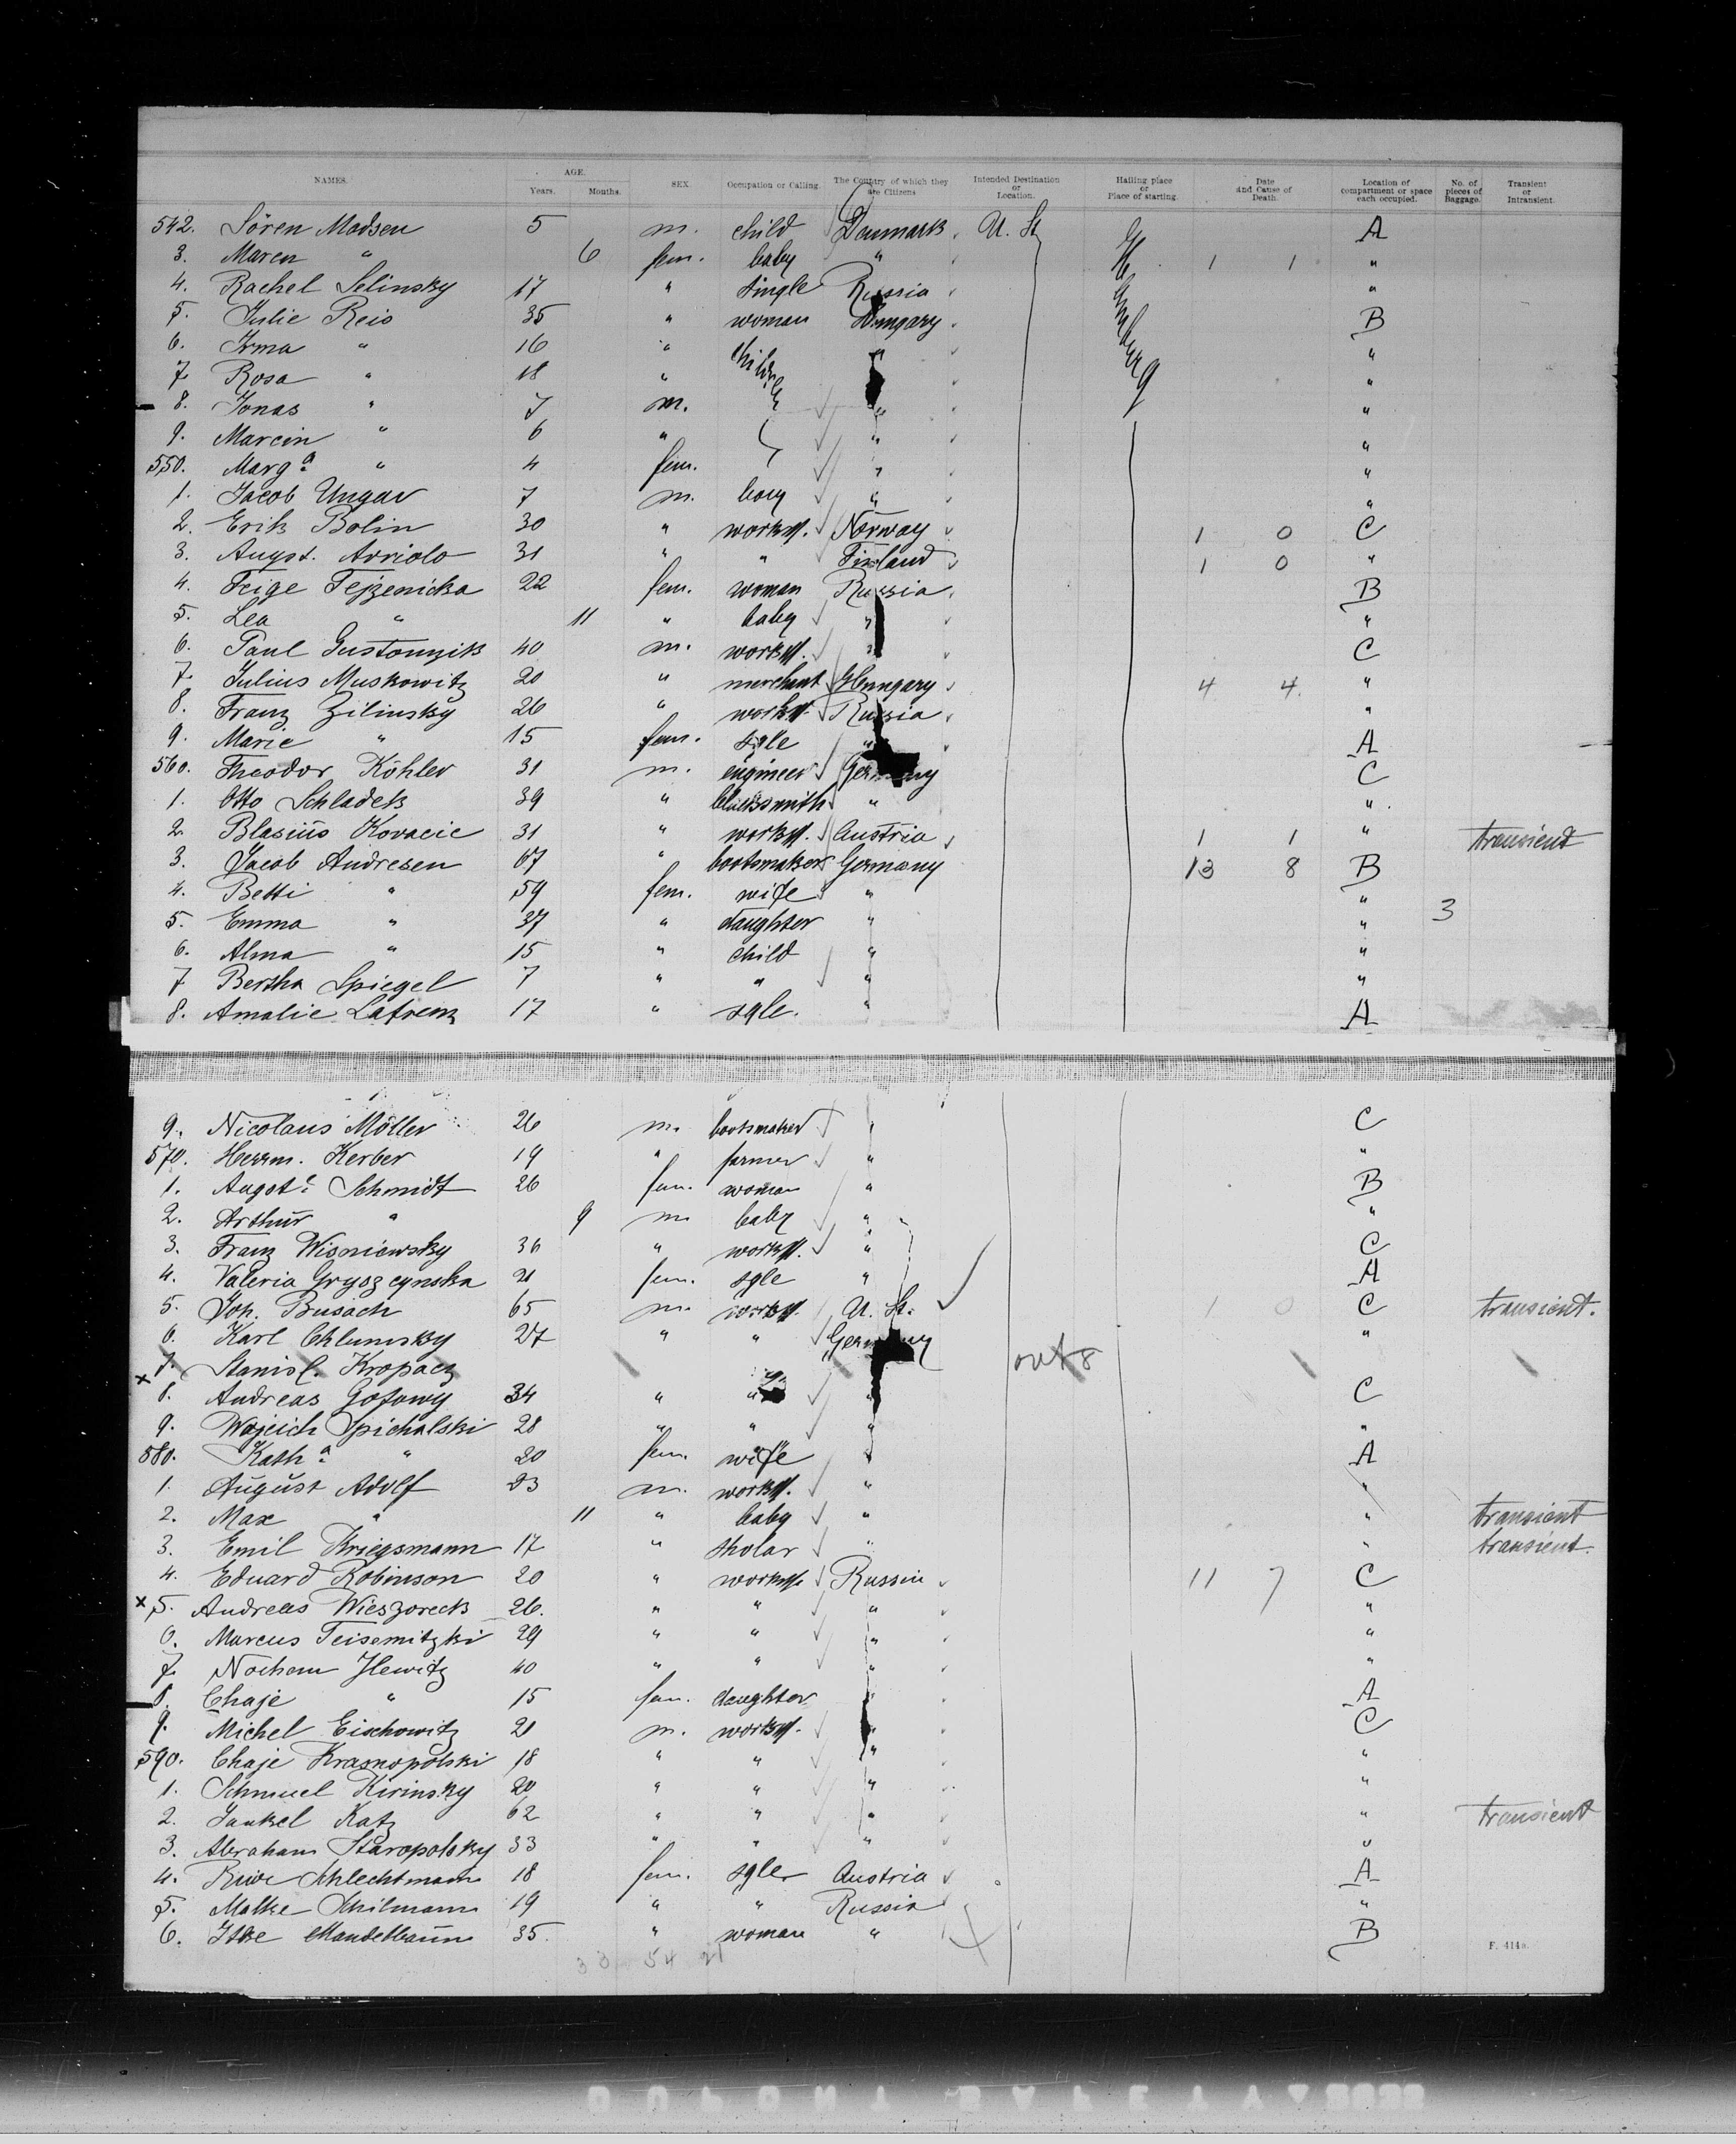 NAMES. AGE. Years. Months. SEX. Occupation or Calling. The Country of which they are Citizens Intended Destination or Location. Hailing place or Place of starting. Date and Cause of Death. Location of compartment or space each occupied. No. of pieces of Baggage. Transient or Intransient.
542. Sören Madsen 5 m. child Denmark U. St Hamburg A
3. Maren " 6 fem. baby " 1 1 "
4. Rachel Selinsky 17 " single Russia "
5. Julie Reis 35 " woman Hungary B
6. Irma " 16 " children " "
7. Rosa " 18 " "
8. Jonas " 7 m. " "
9. Marcin " 6 " " "
550. Marga " 4 fem. " "
1. Jacob Ungar 7 m. boy " "
2. Erik Bolin 30 " workm. Norway 1 0 C
3. Augst. Arriolo 31 " " Finland 1 0 "
4. Feige Tejzenicka 22 fem. woman Russia B
5. Lea " 11 " baby " "
6. Paul Gustonnzik 40 m. workm. " C
7. Julius Muskowitz 20 " merchant Hungary 4 4 "
8. Franz Zilinsky 26 " workm. Russia "
9. Marie " 15 fem. sgle " A
560. Theodor Köhler 31 m. engineer Germany C
1. Otto Schladek 39 " blacksmith " "
2. Blasius Kovacic 31 " workm. Austria 1 1 " transient
3. Jacob Andresen 67 " bootsmaker Germany 13 8 B
4. Betti " 59 fem. wife " " 3
5. Emma " 37 " daughter " "
6. Alma " 15 " child " "
7 Bertha Spiegel 7 " " " "
8. Amalie Lafrenz 17 " sgle. " A
9. Nicolaus Möller 26 m. bootsmaker " C
570. Herrm. Kerber 19 " farmer " "
1. Augste Schmidt 26 fem. woman " B
2. Arthur " 9 m. baby " "
3. Franz Wisniewsky 36 " workm. " C
4. Valeria Gryszcynska 21 fem. sgle " A
5. Joh. Busach 65 m. workm. U. St. 1 0 C transient.
6. Karl Chlumsky 27 " " Germany "
x 7. Stanisl. Kropacz out 8
8. Andreas Gofowy 34 " " " C
9. Wojcich Spichalski 28 " " " "
580. Katha " 20 fem. wife " A
1. August Adolf 23 m. workm. " "
2. Max " 11 " baby " " transient
3. Emil Kriegsmann 17 " skolar " " transient.
4. Eduard Robinson 20 " workm. Russia 11 7 C
x 5. Andreas Wieszoreck 26. " " " "
6. Marcus Teisemitzki 29 " " " "
7. Nochem Ilewitz 40 " " " "
8. Chaje " 15 fem. daughter " A
9. Michel Eischowitz 21 m. workm. " C
590. Chaje Krasnopolski 18 " " " "
1. Schmuel Kirinsky 20 " " " "
2. Jankel Katz 62 " " " " transient
3. Abraham Staropolsky 33 " " " "
4. Riwe Schlechtmann 18 fem. sgle Austria A
5. Malke Schilmann 19 " " Russia "
6. Itke Mandelbaum 35. " woman " B
33 54 21
F. 414a.